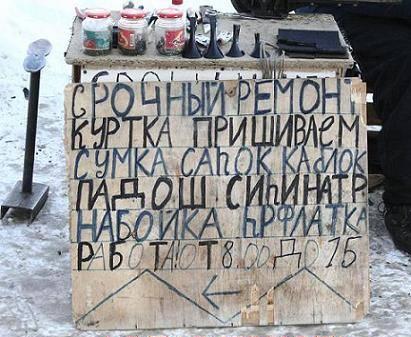 СРОЧНЫЙ РЕМОНТ
КУРТКА ПРИШИВАЕМ
СУМКА САҺОК КАБЛОК
ПАДОШ СИҺИНАТР
НАБОЙКА ҺРФЛАТКА
РАБОТАЮТ 8.00 ДО 15